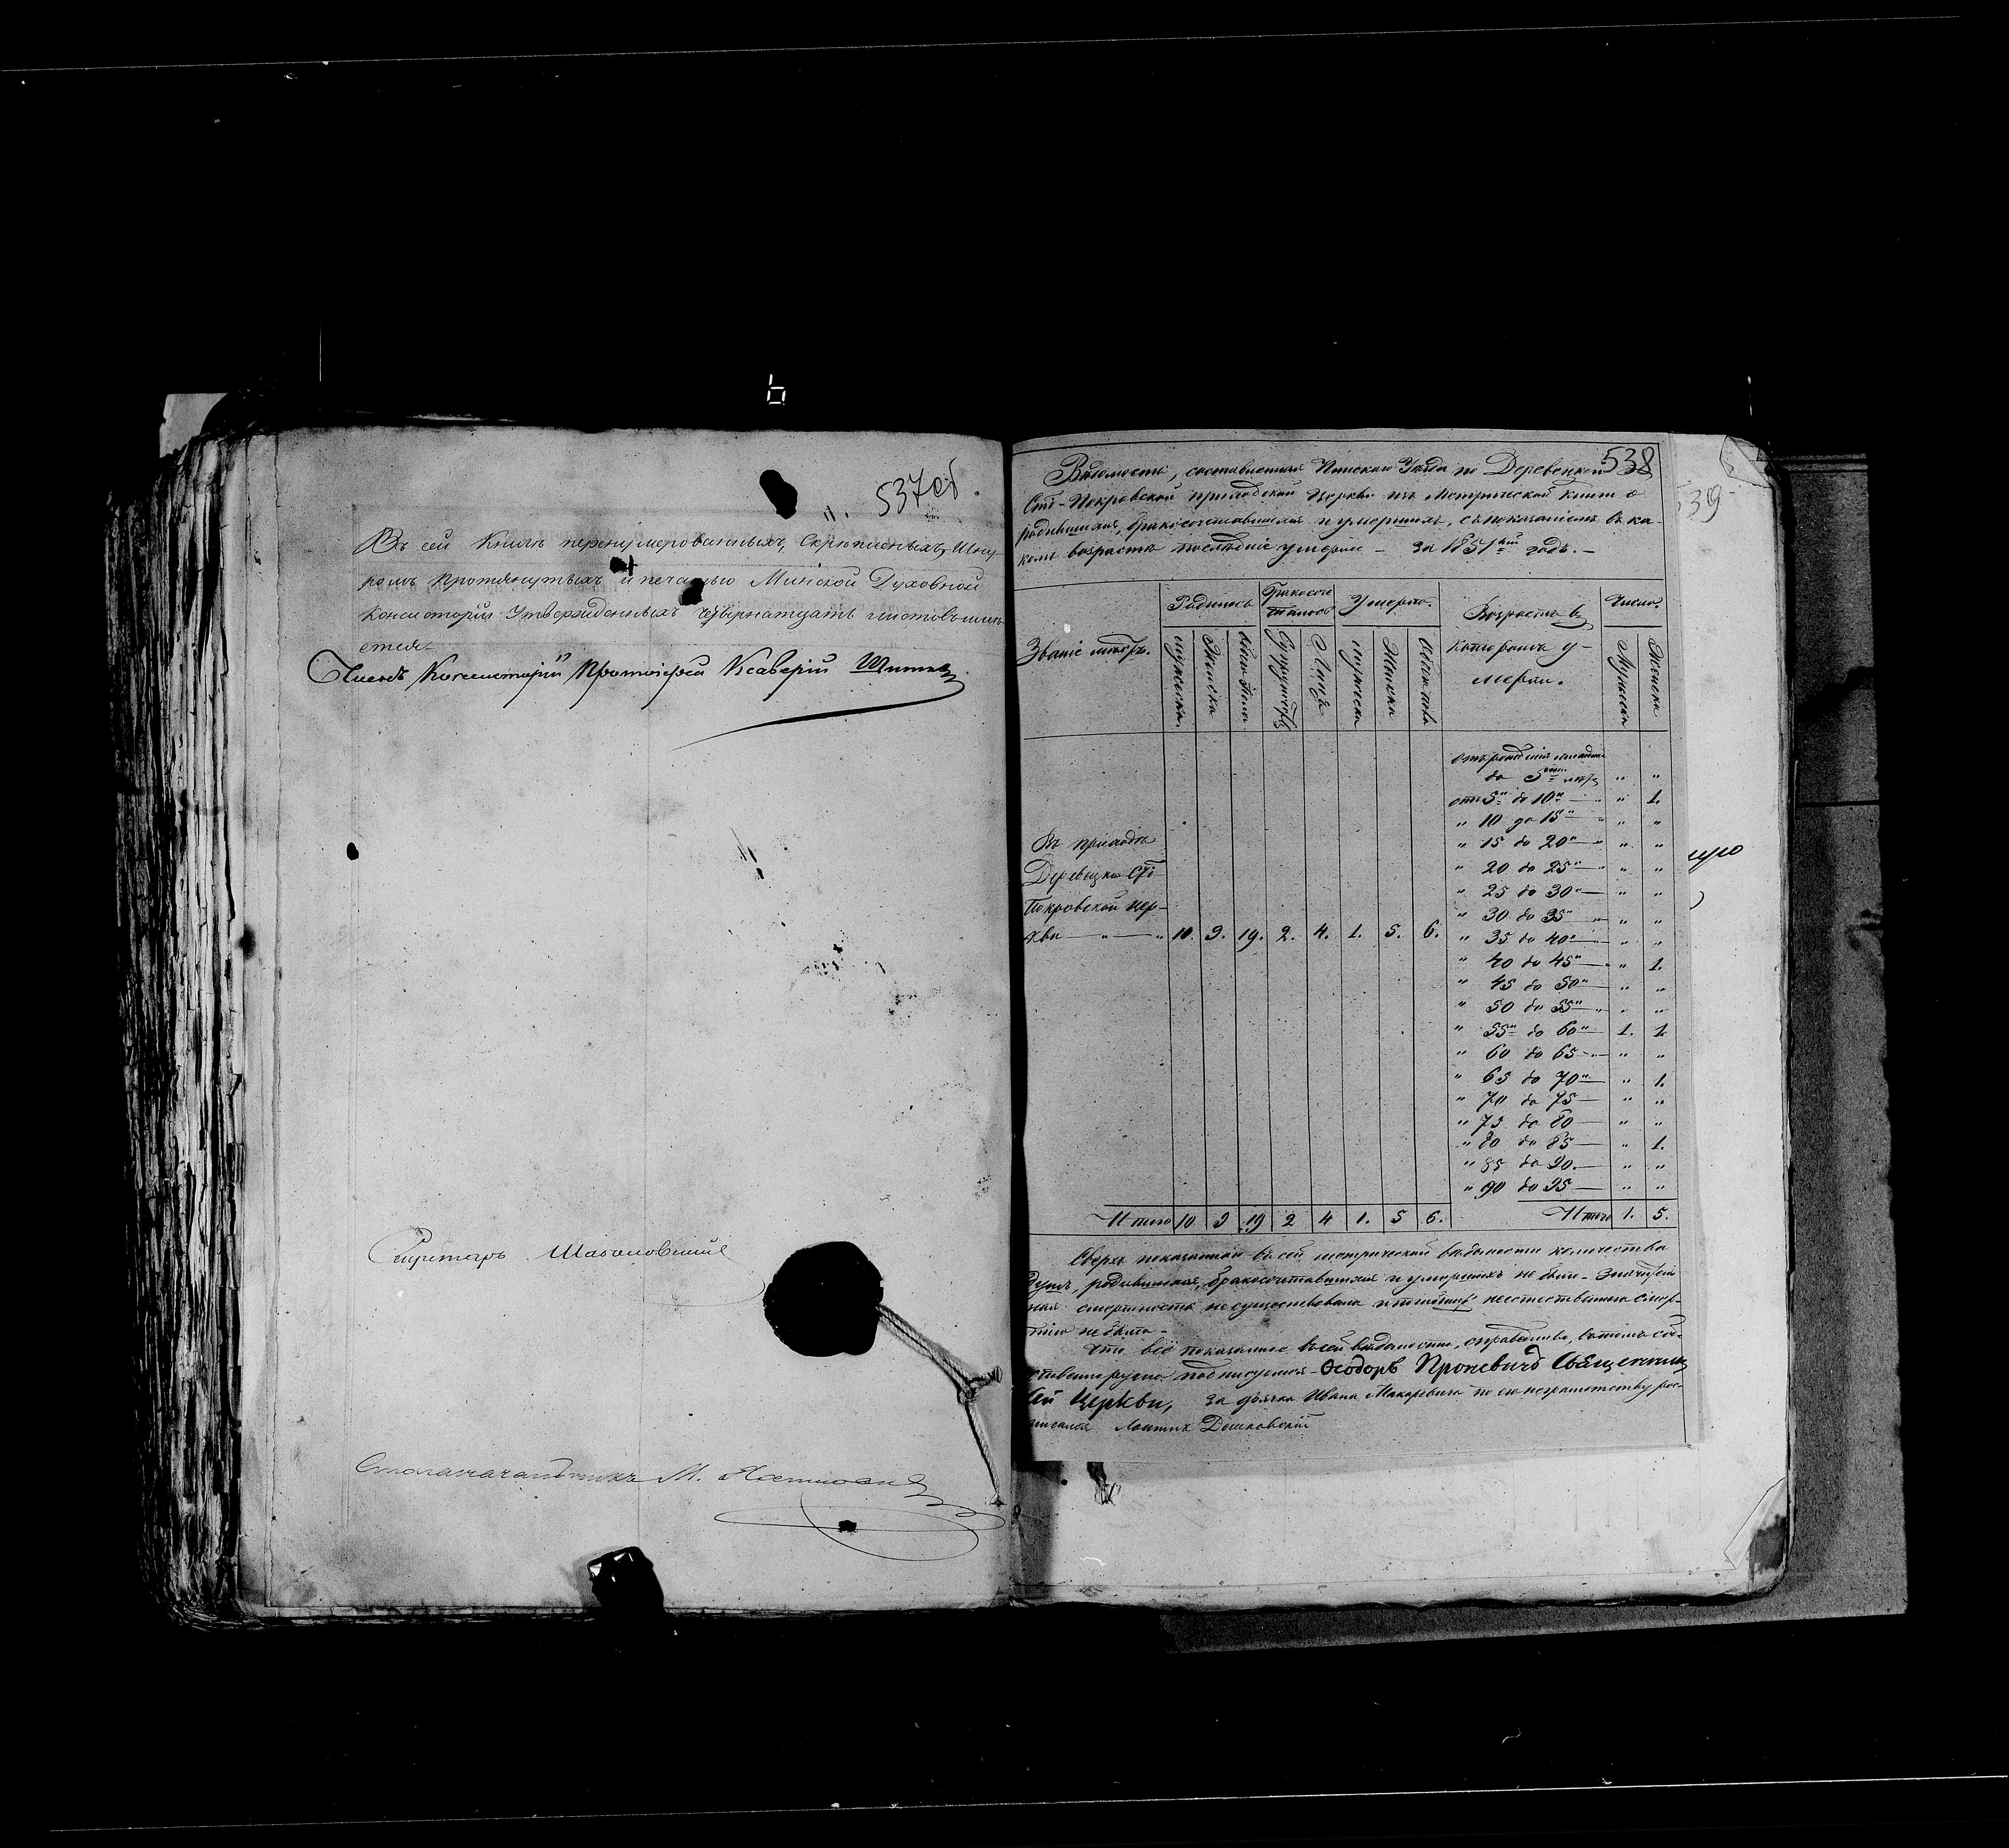 537об.
Въ сей Книгѣ перенумерованныхъ, скрѣпленныхъ, Шну-
ромъ протянутыхъ и печатью Минской Духовной
Консисторіи утвержденныхъ четырнатцать листовъ
Членъ Консисторіи Протоіерей Ксаверій
Секретарь
Столоначальникъ М.
538
Вѣдомость, составленная Пинскаго Уѣзда по Деревенкой
Сто-Покровской приходской Церкви изъ Метрической книги о
родившихся, бракосочетавшихся и умершихъ, съ показаніемъ въ ка-
комъ возрастѣ послѣдніе умерли - за 1851 годъ. -
539
Званіе мѣстъ.
Родилось
Бракосоче
талось
Умерло.
Возрастъ въ
которомъ у-
мерли.
Число.
мужеска.
Женска
обоего пола
Супружествъ
Лицъ
мужеска
Женска
Мужеска
Женска
отъ рожденія младен.
до 5 лѣтъ " "
отъ 5 до 10 — " 1.
" 10 до 15 " " "
" 15 до 20 — " "
" 20 до 25 — " "
" 25 до 30 — " "
" 30 до 35 " " "
" 35 до 40 — " "
" 40 до 45 — " 1.
" 45 до 50 — " "
" 50 до 55 — " "
" 55 до 60 — 1. 1.
" 60 до 65 — " "
" 65 до 70 — " 1.
" 70 до 75 — " "
" 75 до 80 — " "
" 80 до 85 — " 1.
" 85 до 90 — " "
" 90 до 95 — " "
Въ приходѣ
Покровской Цер-
кви — " — " 10. 9. 19. 2. 4. 1. 5. 6.
Итого 10 9 19 2 4 1. 5 6.
Итого 1. 5.
Сверхъ показаннаго въ сей метрической вѣдомости количества
душъ, родившихся, бракосочетавшихся и умершихъ не было - Значитель
ная смертность не существовала и погибшихъ неестественною смер-
тію не было -
Что всё показанное въ сей вѣдомости, справедливо, въ томъ соб-
ственноручно подписуемся - Ѳеодоръ Проневичъ Священникъ
сей Церкви, за дьячка Ивана Макаревича по его неграмотству рос-
писался